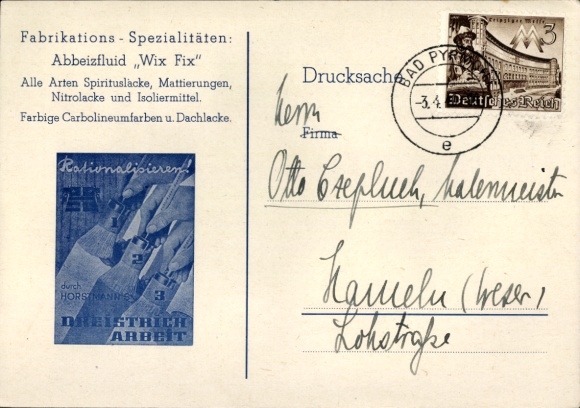 Fabrikations - Spezialitäten:
Abbeizfluid „Wix Fix"
Alle Arten Spirituslacke, Mattierungen,
Nitrolacke und Isoliermittel.
Farbige Carbolineumfarben u. Dachlacke.
Rationalisieren!
1
2
3
durch
HORSTMANN'S
DREISTRICH
ARBEIT
Drucksache
Leipziger Messe
3
Deutsches Reich
BAD PYRMONT
-3.4.
e
Herrn
Firma
Otto Czepluch, Malermeister
Hameln (Weser)
Lohstraße